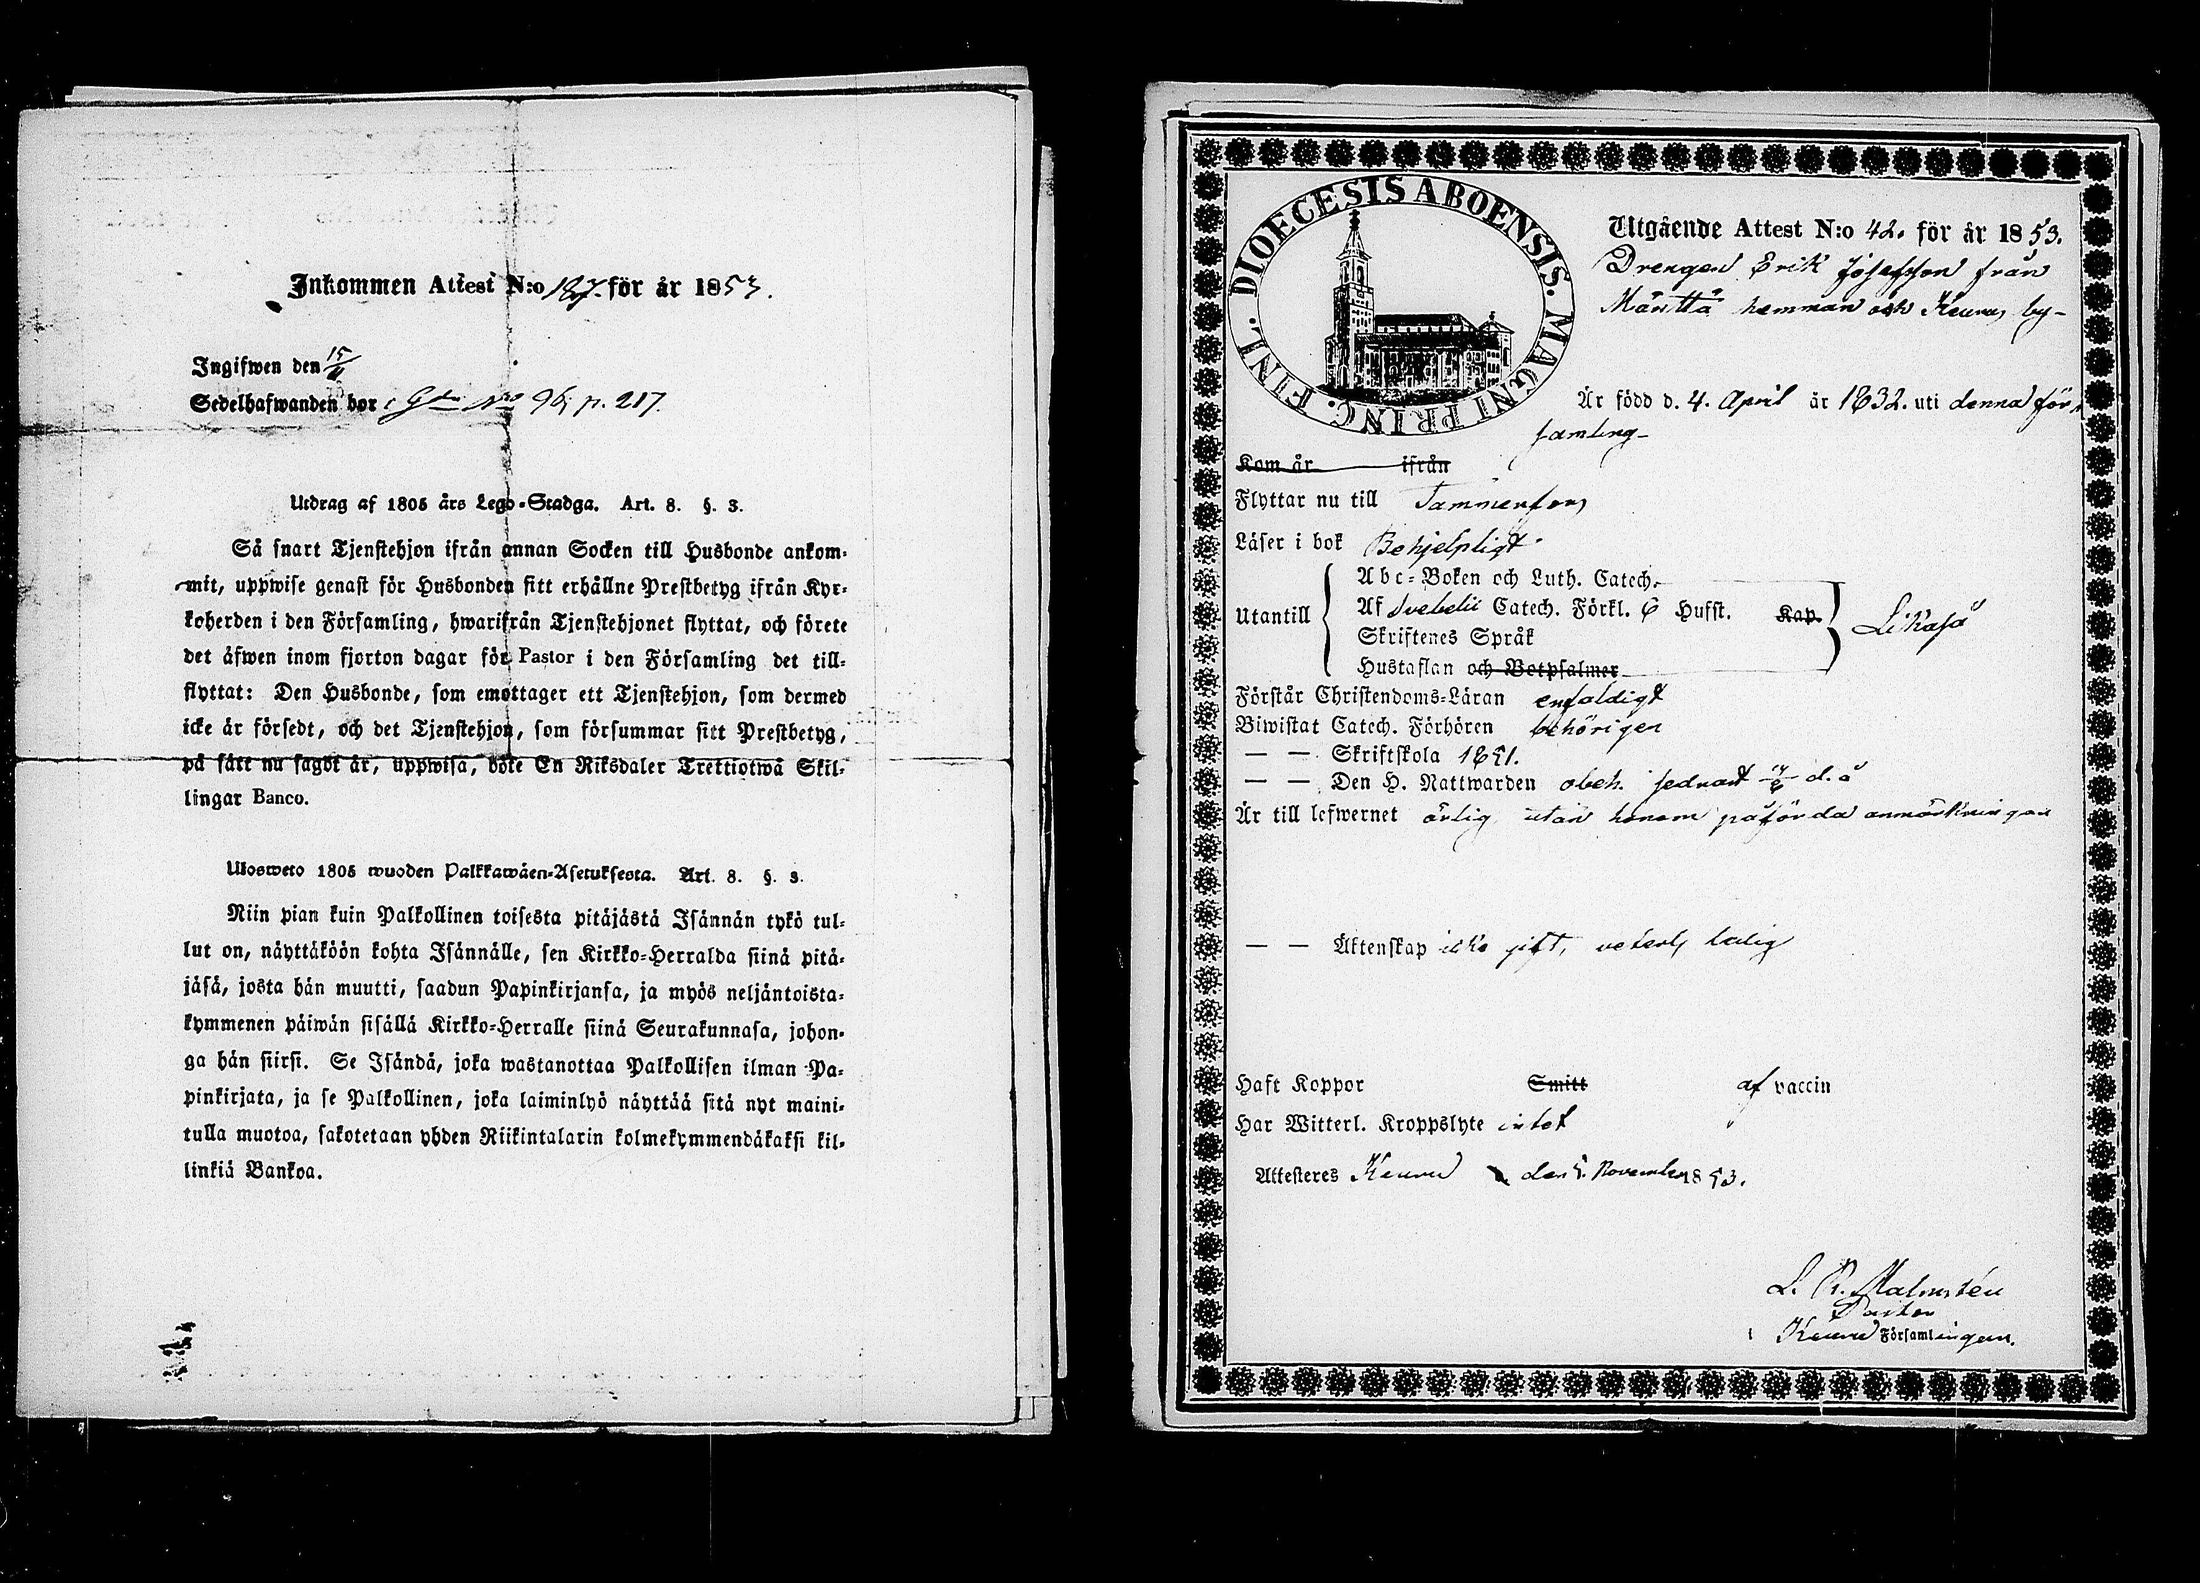 Inkommen Attest N:o 187. för år 1853.
Ingifwen den 15/11
Sedelhafwanden bor i Gdn Nro 96, p. 217.
Utdrag af 1805 års Lego-Stadga. Art. 8. §. 3.
Så snart Tjenstehjon ifrån annan Socken till Husbonde ankom-
mit, uppwise genast för Husbonden sitt erhållne Prestbetyg ifrån Kyr-
koherden i den Församling, hwarifrån Tjenstehjonet flyttat, och förete
det äfwen inom fjorton dagar för Pastor i den Församling det till-
flyttat: Den Husbonde, som emottager ett Tjenstehjon, som dermed
icke är försedt, och det Tjenstehjon, som försummar sitt Prestbetyg,
på sätt nu sagdt är, uppwisa, böte En Riksdaler Trettiotwå Skil-
lingar Banco.
Ulosweto 1805 wuoden Palkkawäen-Asetuksesta. Art. 8. §. 3.
Niin pian kuin Palkollinen toisesta pitäjästä Isännän tykö tul-
lut on, näyttäköön kohta Isännälle, sen Kirkko-Herralda siinä pitä-
jäsä, josta hän muutti, saadun Papinkirjansa, ja myös neljäntoista-
kymmenen päiwän sisällä Kirkko-Herralle siinä Seurakunnasa, johon-
ga hän siirsi. Se Isändä, joka wastanottaa Palkollisen ilman Pa-
pinkirjata, ja se Palkollinen, joka laiminlyö näyttää sitä nyt maini-
tulla muotoa, sakotetaan yhden Riikintalarin kolmekymmendäkaksi kil-
linkiä Bankoa.
DIOECESIS ABOENSIS. MAGNI PRINC. FINL.
Utgående Attest N:o 42. för år 1853.
Drengen Erik Josefsson från
Märittä hemman och Keuru by-
Är född d. 4. April år 1832. uti denna för-
samling-
Kom år ifrån
Flyttar nu till Tammerfors
Läser i bok Behjelpligt
Utantill
Abc-Boken och Luth. Catech.
Af Svebelii Catech. Förkl. 6 Hufst. Kap.
Skriftenes Språk
Hustaflan och Botpsalmer
Likaså
Förstår Christendoms-Läran enfaldigt
Biwistat Catech. Förhören behörigen
— — Skriftskola 1851.
— — Den H. Nattwarden obeh. sednast d. å
Är till lefwernet ärlig utan honom påförda anmärkningar
— — Äktenskap icke gift, veterl. ledig
Haft Koppor Smitt af vaccin
Har Witterl. Kroppslyte intet
Attesteres Keuru den 5. November 1853.
L. R. Malmstén
Pastor
i Keuru Församlingen.